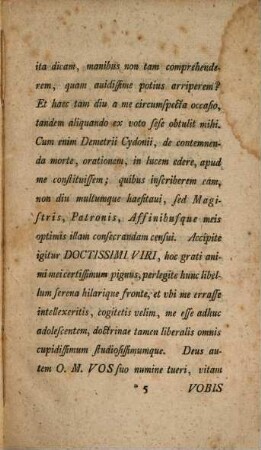 ita dicam, manibus non tam comprehende-
rem, quam auidissime potius arriperem?
Et haec tam diu a me circumspecta occasio,
tandem aliquando ex voto sese obtulit mihi.
Cum enim Demetrii Cydonii, de contemnen-
da morte, orationem, in lucem edere, apud
me constituissem; quibus inscriberem eam,
non diu multumque haesitaui, sed Magi-
stris, Patronis, Affinibusque meis
optimis illam consecrandam censui. Accipite
igitur DOCTISSIMI VIRI, hoc grati ani
mi mei certissimum pignus, perlegite hunc libel-
lum serena hilarique fronte, et vbi me errasse
intellexeritis, cogitetis velim, me esse adhuc
adolescentem, doctrinae tamen liberalis omnis
cupidissimum studiosissimumque. Deus au-
tem O. M. VOS suo numine tueri, vitam
* 5 VOBIS